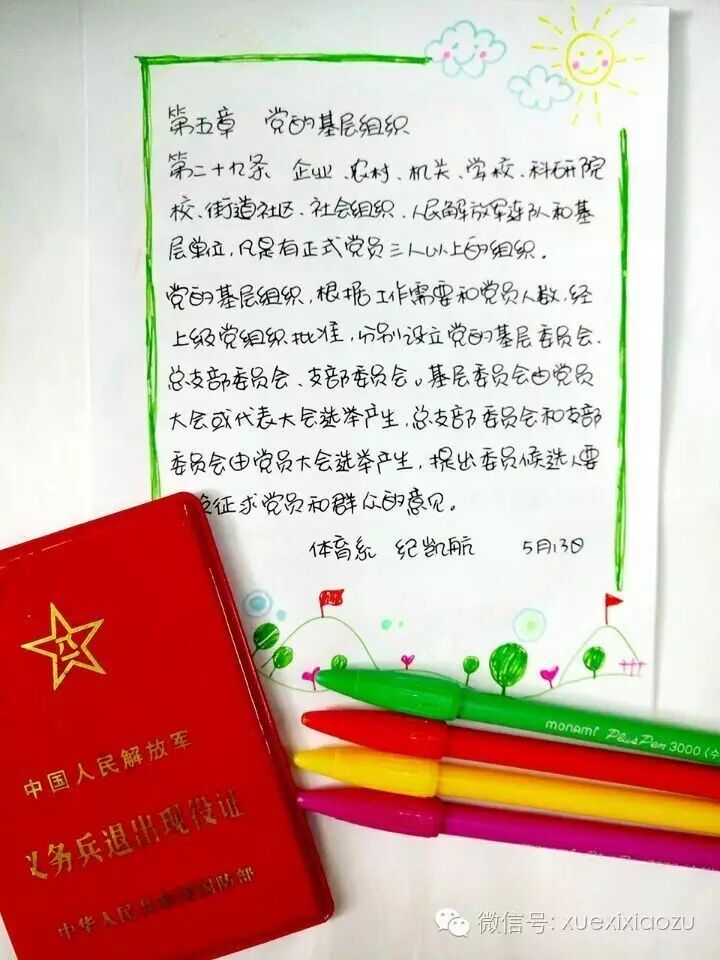 第五章 党的基层组织
第二十九条 企业、农村、机关、学校、科研院
校、街道社区、社会组织、人民解放军连队和基
层单位，凡是有正式党员三人以上的组织。
党的基层组织，根据工作需要和党员人数，经
上级党组织批准，分别设立党的基层委员会、
总支部委员会、支部委员会。基层委员会由党员
大会或代表大会选举产生，总支部委员会和支部
委员会由党员大会选举产生，提出委员候选人要
征求党员和群众的意见。
体育系 纪凯航 5月13日
八一
中国人民解放军
义务兵退出现役证
中华人民共和国国防部
monami Plus Pen 3000 (수
3000
微信号: xuexixiaozu